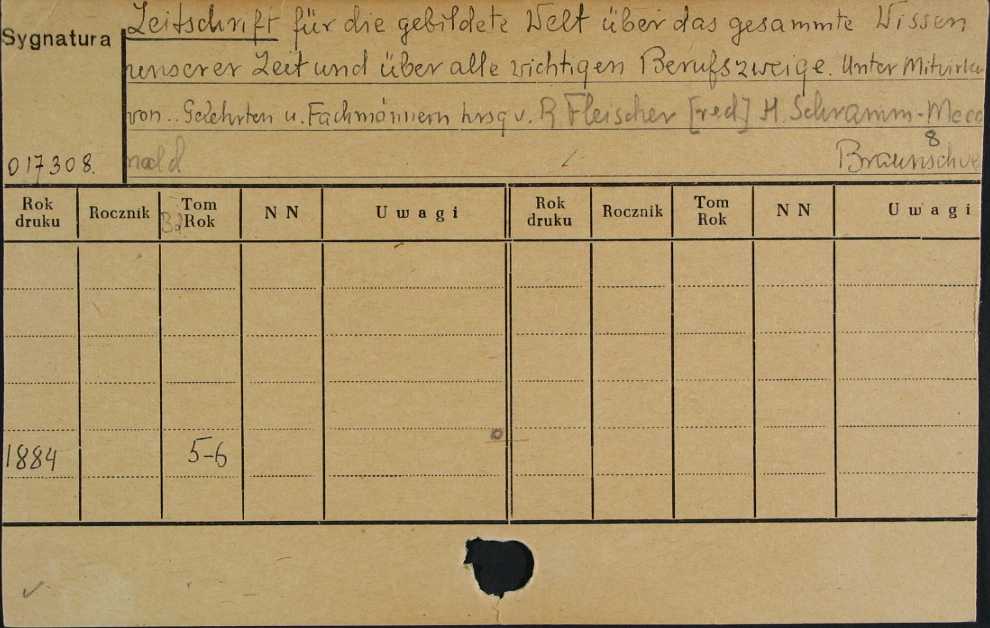 Sygnatura
Zeitschrift für die gebildete Welt über das gesammte Wissen
unserer Zeit und über alle wichtigen Berufszweige. Unter Mitwirku
von .. Gelehrten u. Fachmännern hrsg v. R Fleischer [red] H. Schramm-Macd
nald
8
Braunschw
017308.
Rok druku Rocznik Tom Rok N N Uwagi Rok druku Rocznik Tom Rok N N Uwagi
Bd
1884 5-6